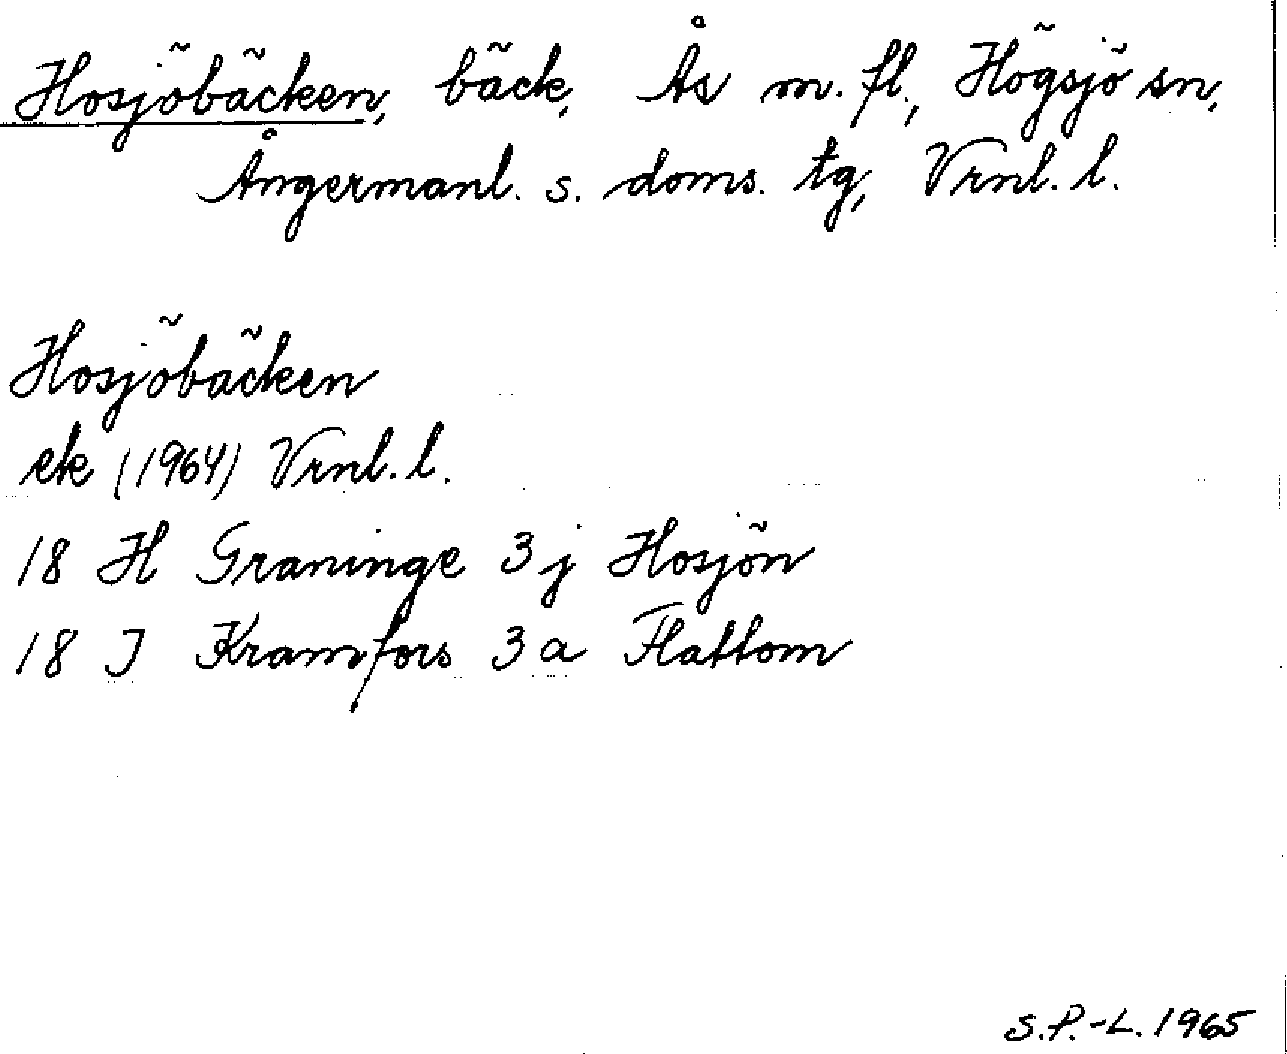 Hosjöbäcken, bäck, Ås m. fl., Högsjö sn,
Ångermanl. s. doms. tg, Vrnl. l.
Hosjöbäcken
ek (1964) Vrnl. l.
18 H Graninge 3 j Hosjön
18 J Kramfors 3 a Flattom
S.P.-L. 1965